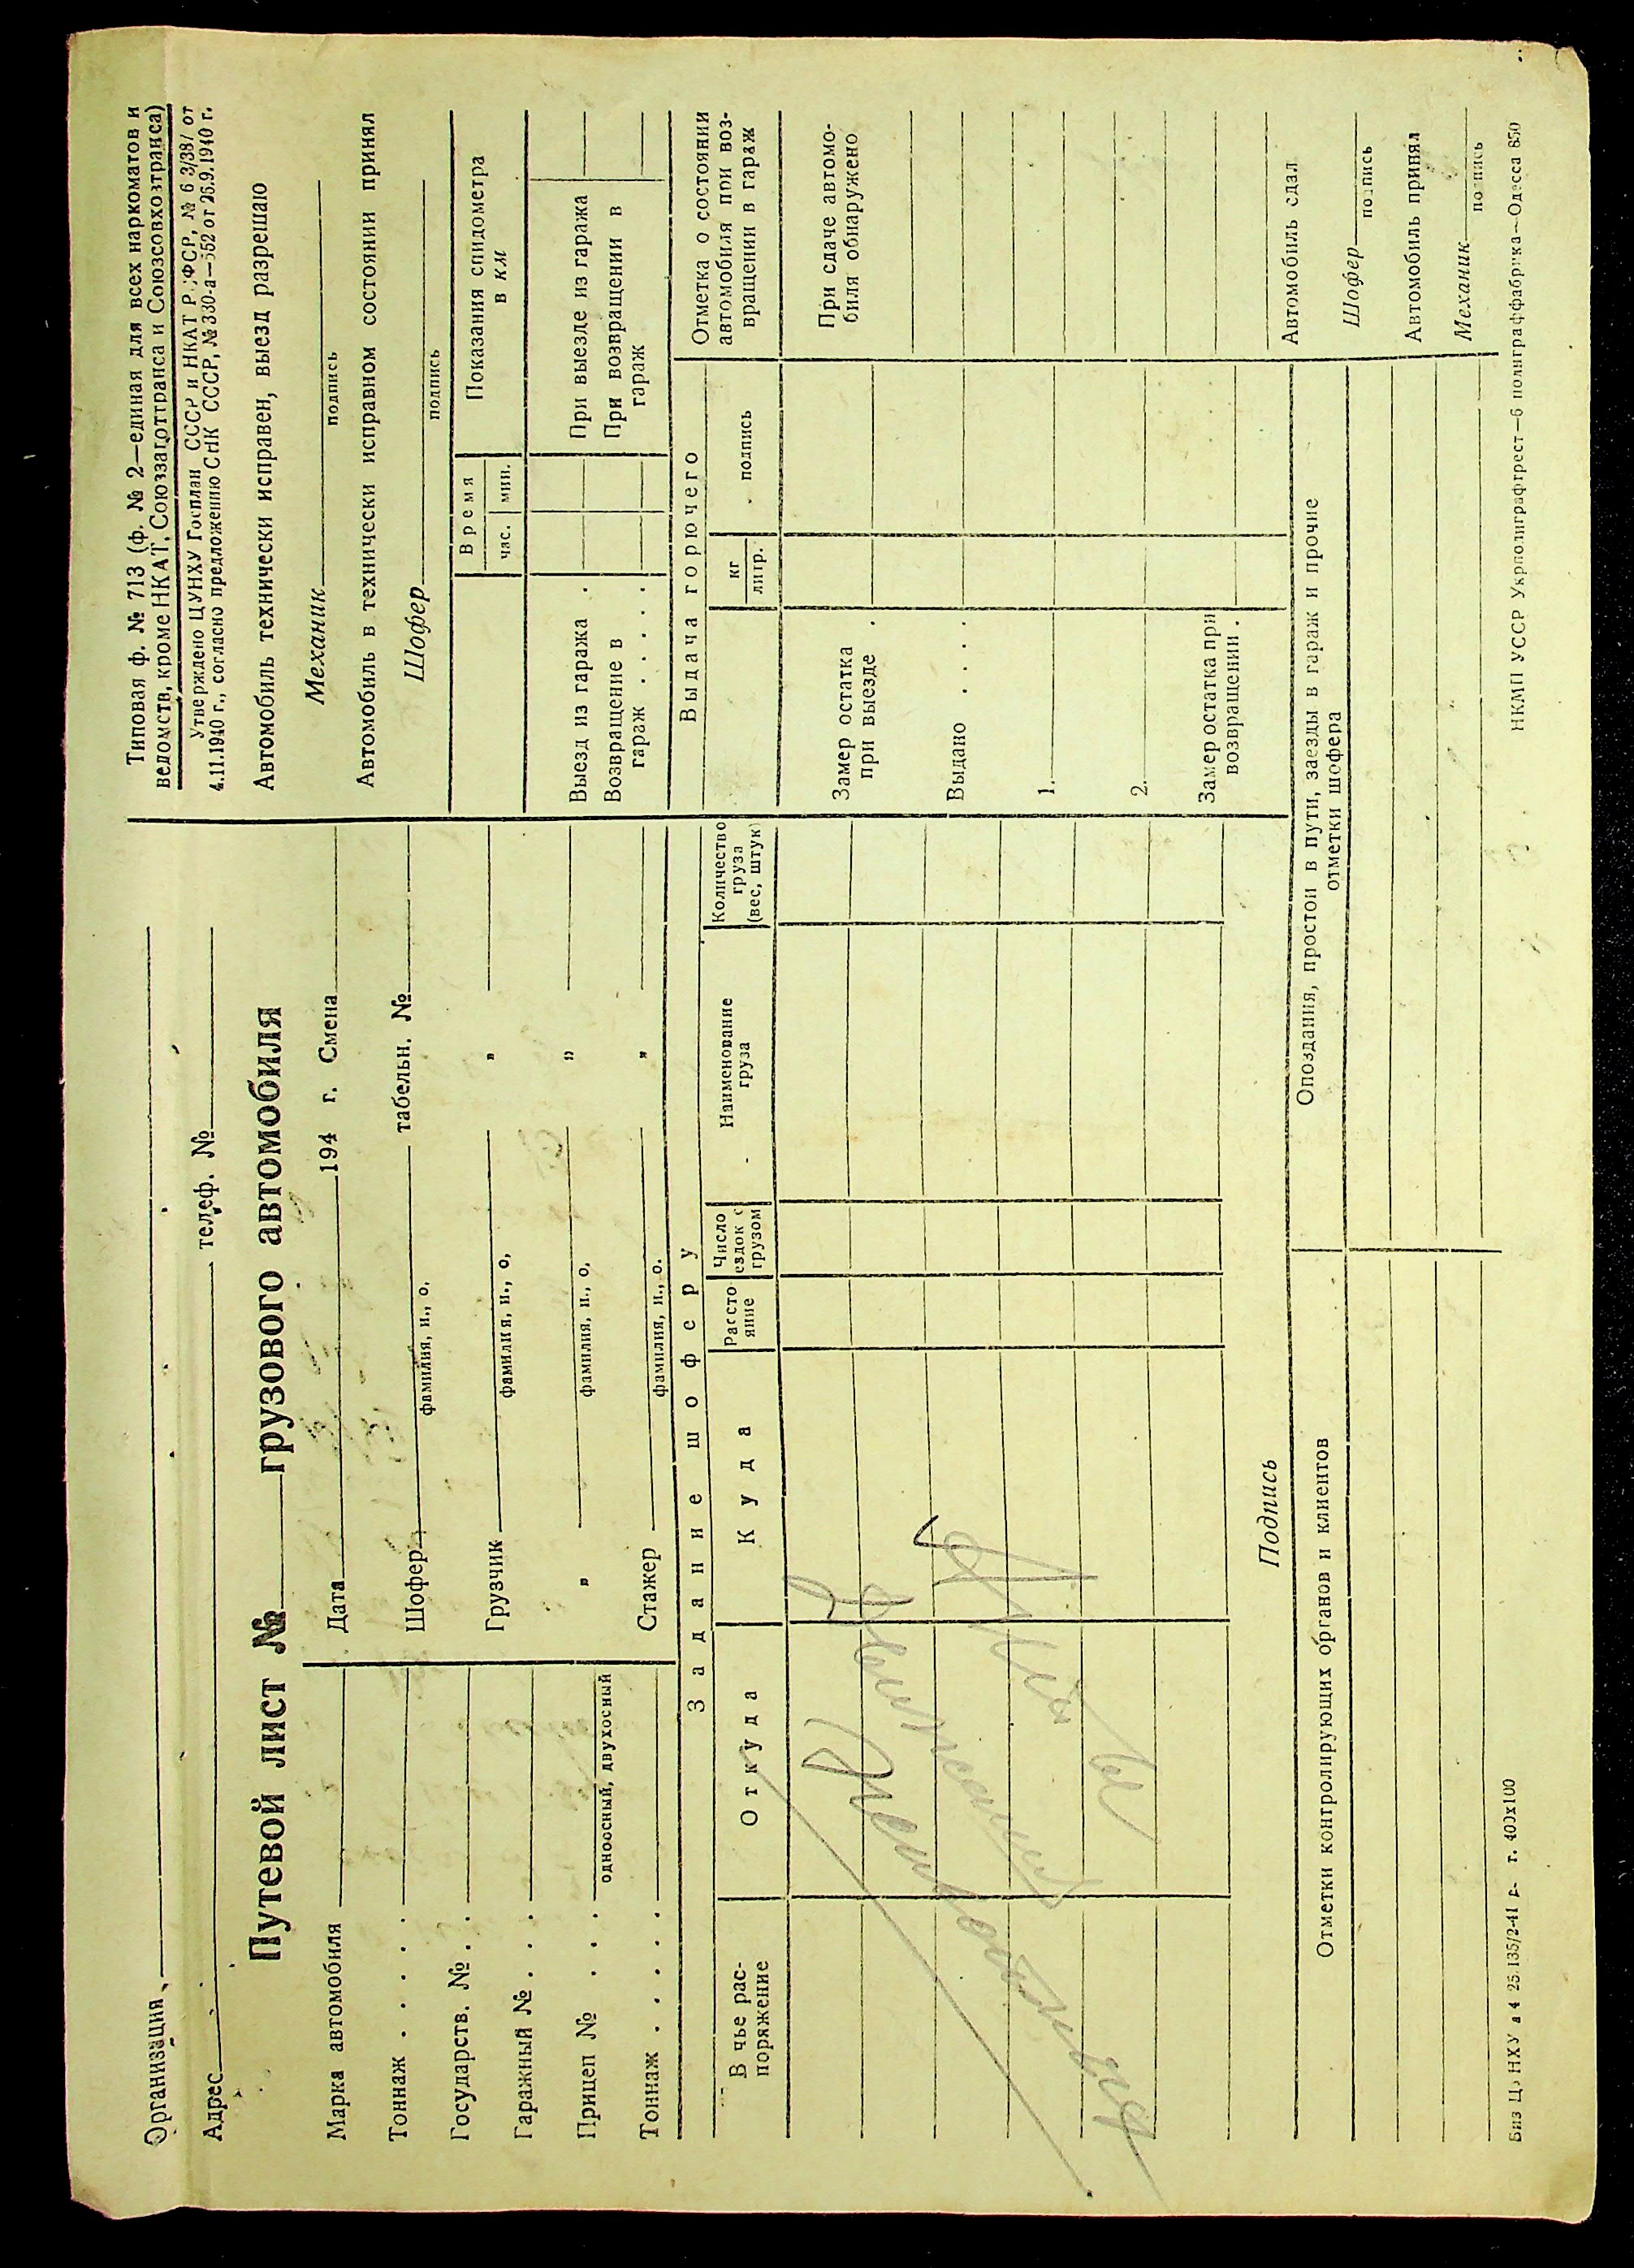 Организация
Адрес телеф. №
Путевой лист № грузового автомобиля
Марка автомобиля
Тоннаж . . . . .
Государств. № . .
Гаражный № . . .
Прицеп № . . .
одноосный, двухосный
Тоннаж . . . . .
Дата 194 г. Смена
Шофер табельн. №
фамилия, и., о.
Грузчик "
фамилия, и., о,
" "
фамилия, и., о.
Стажер "
фамилия, и., о.
Типовая ф. № 713 (ф. № 2—единая для всех наркоматов и
ведомств, кроме НКАТ, Союззаготтранса и Союзсовхозтранса)
Утверждено ЦУНХУ Госплан СССР и НКАТ РСФСР, № 6 3/387 от
4.11.1940 г., согласно предложению СНК СССР, № 330-а—552 от 26.9.1940 г.
Автомобиль технически исправен, выезд разрешаю
Механик
подпись
Автомобиль в технически исправном состоянии принял
Шофер
подпись
Время
час. мин.
Показания спидометра
в км
Выезд из гаража .
При выезде из гаража
Возвращение в
гараж . . . . .
При возвращении в
гараж
Задание шоферу
В чье рас-
поряжение
Откуда
Куда
Рассто
яние
Число
ездок с
грузом
Наименование
груза
Количество
груза
(вес, штук)
Выдача горючего
кг
литр.
подпись
Замер остатка
при выезде .
Выдано . . . .
1.
2.
Замер остатка при
возвращении .
Отметка о состоянии
автомобиля при воз-
вращении в гараж
При сдаче автомо-
биля обнаружено
Автомобиль сдал
Шофер
подпись
Автомобиль принял
Механик
подпись
Подпись
Отметки контролирующих органов и клиентов
Опоздания, простои в пути, заезды в гараж и прочие
отметки шофера
НКМП УССР Укрполиграфтрест—6 полиграффабрика—Одесса 650